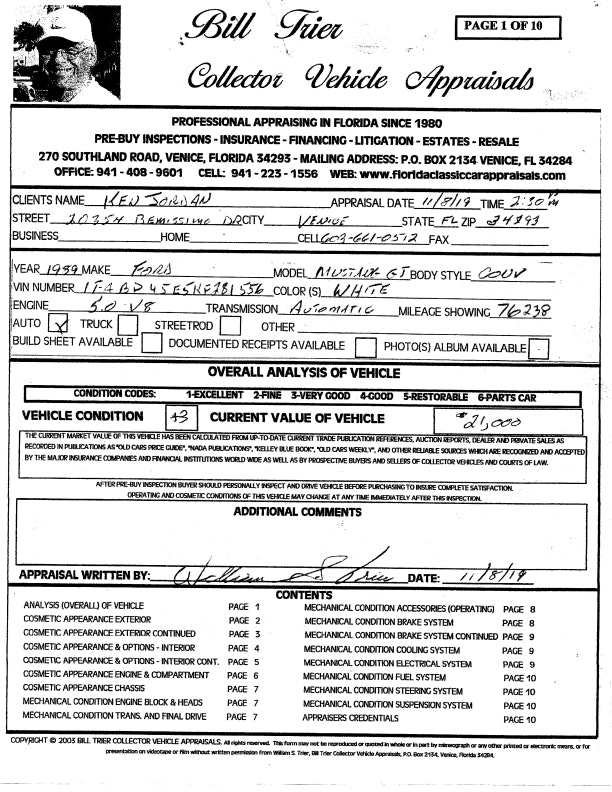 Bill Trier
PAGE 1 OF 10
Collector Vehicle Appraisals
PROFESSIONAL APPRAISING IN FLORIDA SINCE 1980
PRE-BUY INSPECTIONS - INSURANCE - FINANCING - LITIGATION - ESTATES - RESALE
270 SOUTHLAND ROAD, VENICE, FLORIDA 34293 - MAILING ADDRESS: P.O. BOX 2134 VENICE, FL 34284
OFFICE: 941 - 408 - 9601 CELL: 941 - 223 - 1556 WEB: www.floridaclassiccarappraisals.com
CLIENTS NAME KEN JORDAN APPRAISAL DATE 11/8/19 TIME 2:30 PM
STREET 20354 DR CITY VENICE STATE FL ZIP 34293
BUSINESS HOME CELL 603-661-0512 FAX
YEAR 1999 MAKE FORD MODEL MUSTANG GT BODY STYLE CONV
VIN NUMBER COLOR (S) WHITE
ENGINE 5.0 V8 TRANSMISSION AUTOMATIC MILEAGE SHOWING 76238
AUTO X TRUCK STREETROD OTHER
BUILD SHEET AVAILABLE DOCUMENTED RECEIPTS AVAILABLE PHOTO(S) ALBUM AVAILABLE
OVERALL ANALYSIS OF VEHICLE
CONDITION CODES: 1-EXCELLENT 2-FINE 3-VERY GOOD 4-GOOD 5-RESTORABLE 6-PARTS CAR
VEHICLE CONDITION +3 CURRENT VALUE OF VEHICLE $21,000
THE CURRENT MARKET VALUE OF THIS VEHICLE HAS BEEN CALCULATED FROM UP-TO-DATE CURRENT TRADE PUBLICATION REFERENCES, AUCTION REPORTS, DEALER AND PRIVATE SALES AS
RECORDED IN PUBLICATIONS AS "OLD CARS PRICE GUIDE", "NADA PUBLICATIONS", "KELLEY BLUE BOOK", "OLD CARS WEEKLY", AND OTHER RELIABLE SOURCES WHICH ARE RECOGNIZED AND ACCEPTED
BY THE MAJOR INSURANCE COMPANIES AND FINANCIAL INSTITUTIONS WORLD WIDE AS WELL AS BY PROSPECTIVE BUYERS AND SELLERS OF COLLECTOR VEHICLES AND COURTS OF LAW.
AFTER PRE-BUY INSPECTION BUYER SHOULD PERSONALLY INSPECT AND DRIVE VEHICLE BEFORE PURCHASING TO INSURE COMPLETE SATISFACTION.
OPERATING AND COSMETIC CONDITIONS OF THIS VEHICLE MAY CHANGE AT ANY TIME IMMEDIATELY AFTER THIS INSPECTION.
ADDITIONAL COMMENTS
APPRAISAL WRITTEN BY: William S Trier DATE: 11/8/19
CONTENTS
ANALYSIS (OVERALL) OF VEHICLE PAGE 1 MECHANICAL CONDITION ACCESSORIES (OPERATING) PAGE 8
COSMETIC APPEARANCE EXTERIOR PAGE 2 MECHANICAL CONDITION BRAKE SYSTEM PAGE 8
COSMETIC APPEARANCE EXTERIOR CONTINUED PAGE 3 MECHANICAL CONDITION BRAKE SYSTEM CONTINUED PAGE 9
COSMETIC APPEARANCE & OPTIONS - INTERIOR PAGE 4 MECHANICAL CONDITION COOLING SYSTEM PAGE 9
COSMETIC APPEARANCE & OPTIONS - INTERIOR CONT. PAGE 5 MECHANICAL CONDITION ELECTRICAL SYSTEM PAGE 9
COSMETIC APPEARANCE ENGINE & COMPARTMENT PAGE 6 MECHANICAL CONDITION FUEL SYSTEM PAGE 10
COSMETIC APPEARANCE CHASSIS PAGE 7 MECHANICAL CONDITION STEERING SYSTEM PAGE 10
MECHANICAL CONDITION ENGINE BLOCK & HEADS PAGE 7 MECHANICAL CONDITION SUSPENSION SYSTEM PAGE 10
MECHANICAL CONDITION TRANS. AND FINAL DRIVE PAGE 7 APPRAISERS CREDENTIALS PAGE 10
COPYRIGHT © 2003 BILL TRIER COLLECTOR VEHICLE APPRAISALS. All rights reserved. This form may not be reproduced or quoted in whole or in part by mimeograph or any other printed or electronic means, or for
presentation on videotape or film without written permission from William S. Trier, Bill Trier Collector Vehicle Appraisals, P.O. Box 2134, Venice, Florida 34284.